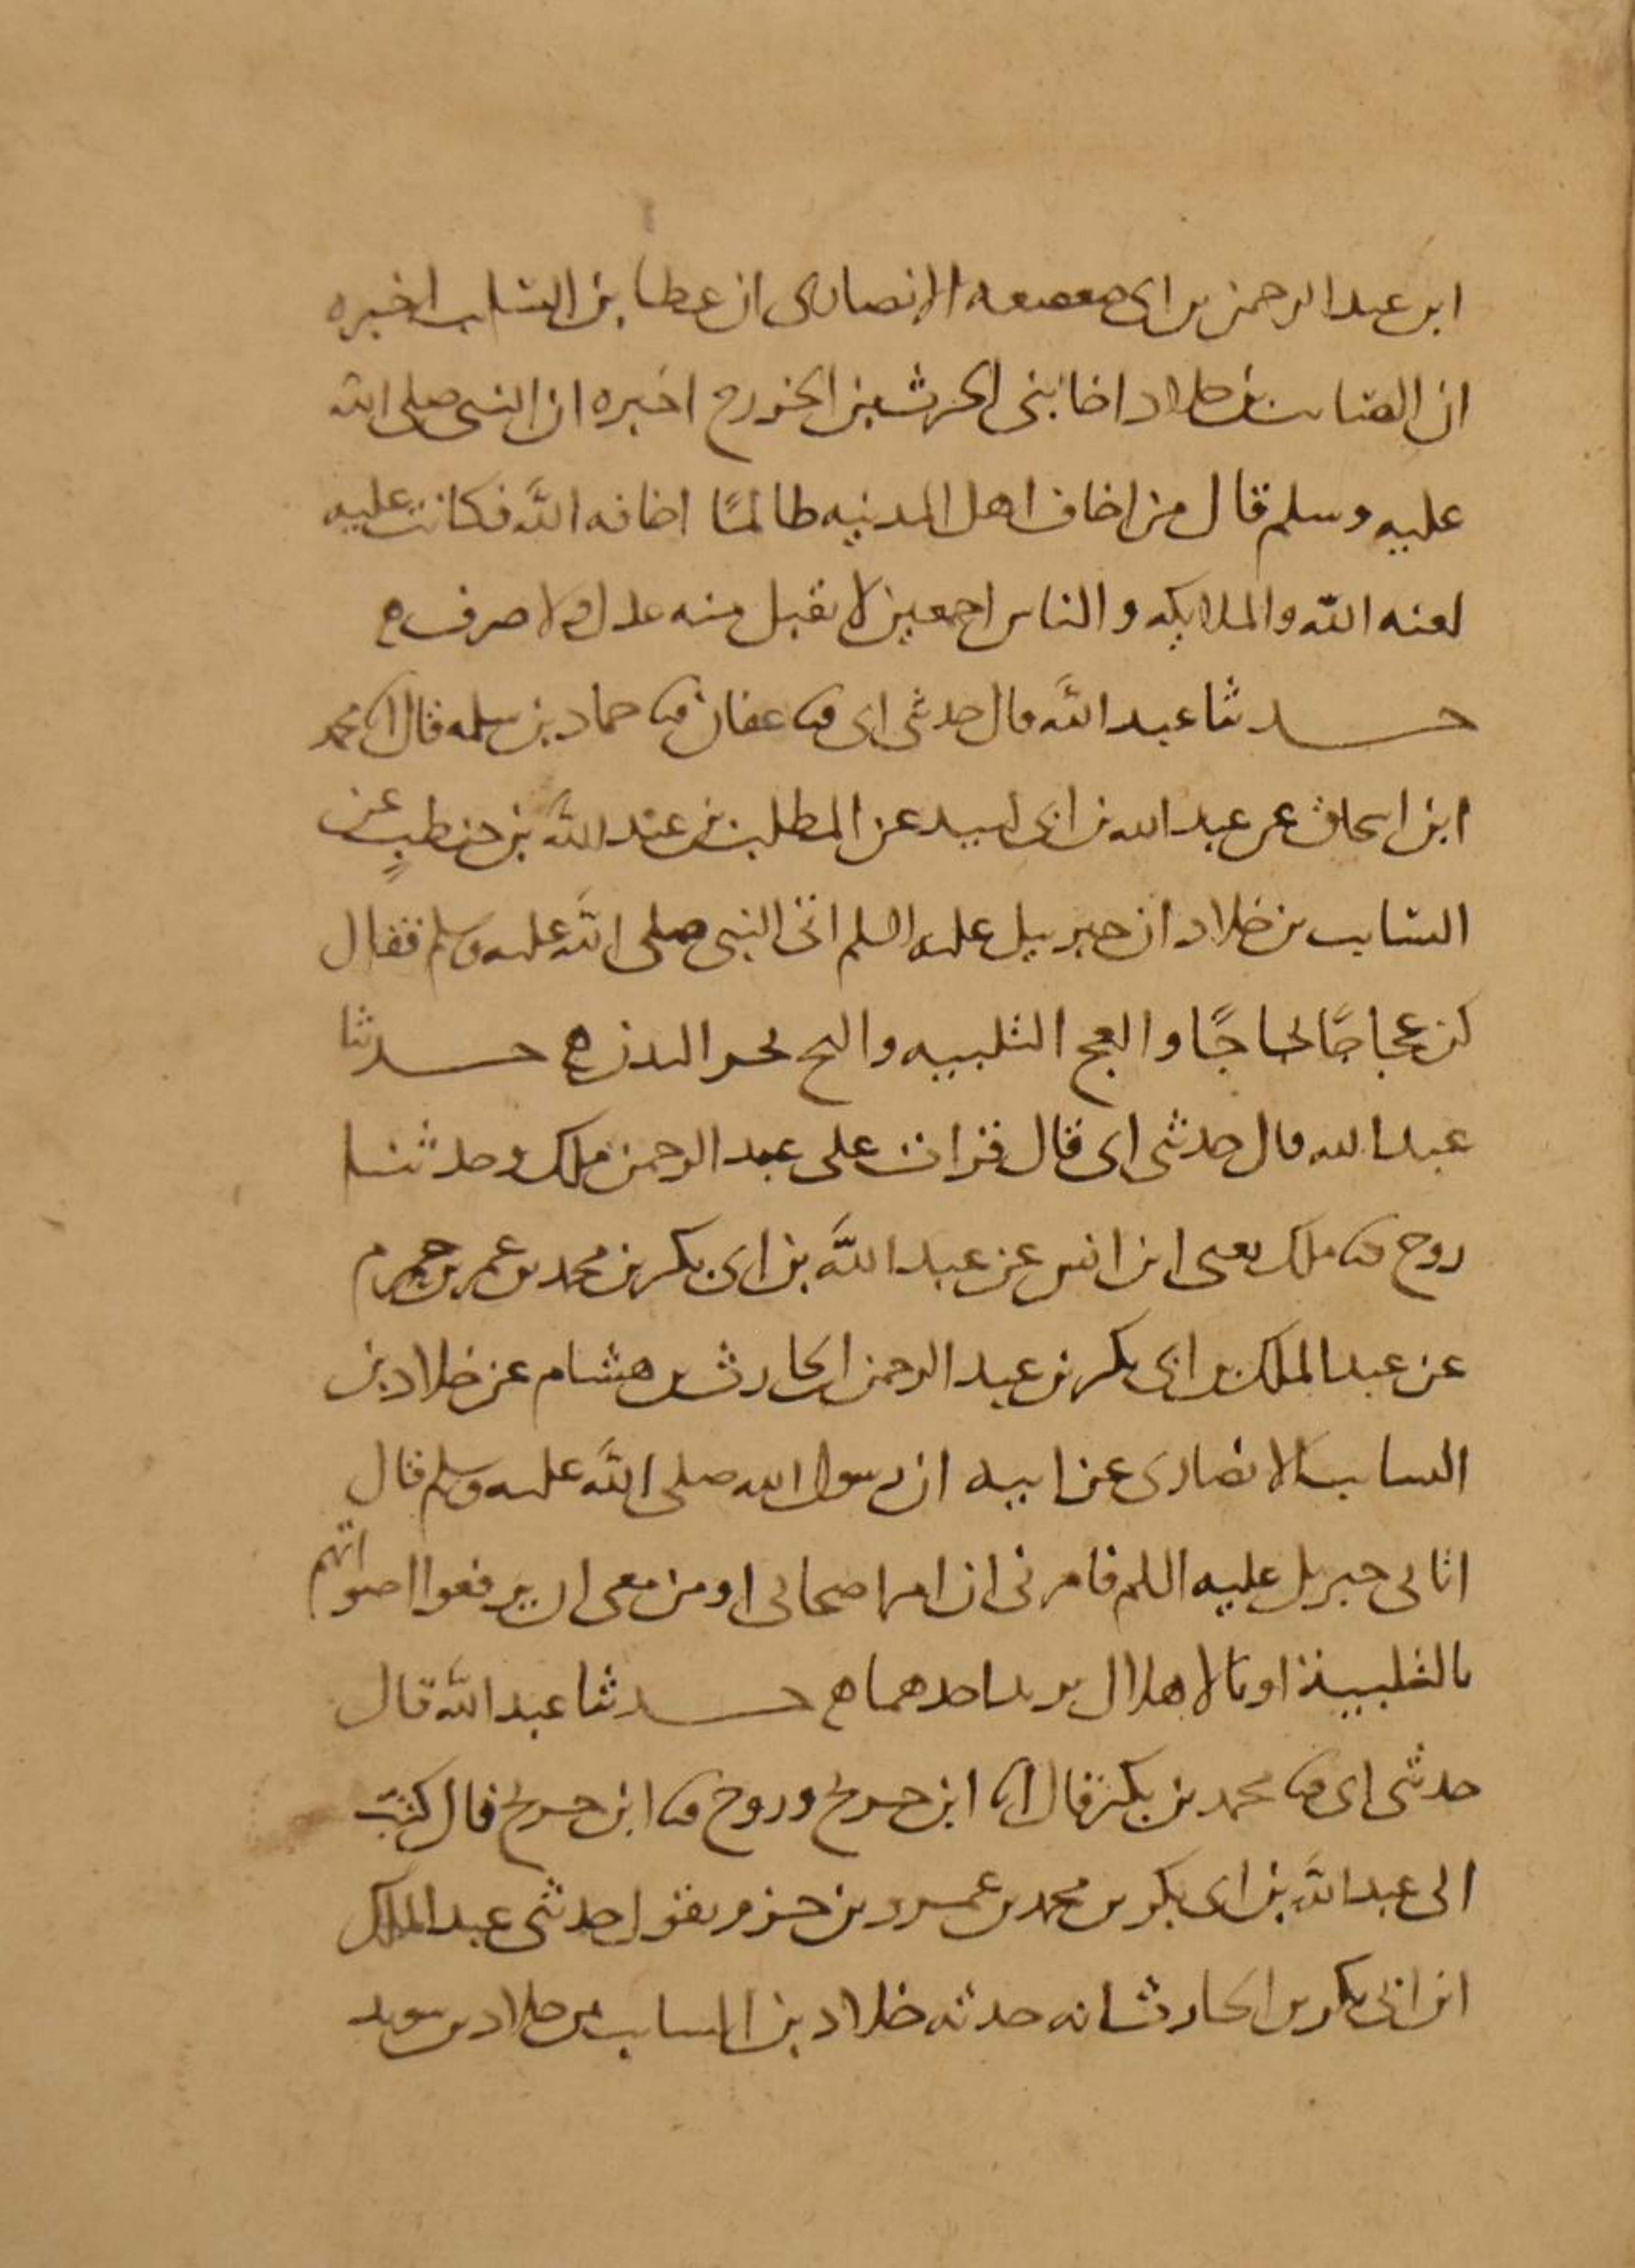 ابن عبد الرحمن بن ابى صعصعه الانصارى ان عطا بن السايب اخبره
ان السايب بن خلاد اخا بنى الحرث بن الخزرج اخبره ان النبى صلى الله
عليه وسلم قال من اخاف اهل المدينه ظالمًا اخافه الله فكانت عليه
لعنه الله والملايكه والناس اجمعين لا يقبل منه عدل ولا صرف ه
حدثنا عبد الله قال حدثنى ابى ثنا عفان ثنا حماد بن سلمه قال انا محمد
ابن اسحاق عن عبد الله بن ابى لبيد عن المطلب بن عبد الله بن حنطبٍ عن
السايب بن خلاد ان جبريل عليه السلم اتى النبى صلى الله عليه وسلم فقال
كن عجاجًا ثجاجًا والعج التلبيه والثج نحر البدن ه حدثنا
عبد الله قال حدثنى ابى قال قرات على عبد الرحمن ملك وحدثنا
روح ثنا ملك يعنى ابن انس عن عبد الله بن ابى بكر بن محمد بن عمر بن حزم
عن عبد الملك بن ابى بكر بن عبد الرحمن الحارث بن هشام عن خلاد بن
السايب الانصارى عن ابيه ان رسول الله صلى الله عليه وسلم قال
اتانى جبريل عليه السلم فامرنى ان امر اصحابى او من معى ان يرفعوا اصواتهم
بالتلبية او بالاهلال يريد احدهما ه حدثنا عبد الله قال
حدثنى ابى ثنا محمد بن بكر قال انا ابن جريج وروح ثنا ابن جريج قال كتب
الى عبد الله بن ابى بكر بن محمد بن عمرو بن حزم يقول حدثنى عبد الملك
ابن ابى بكر بن الحارث انه حدثه خلاد بن السايب بن خلاد بن سويد